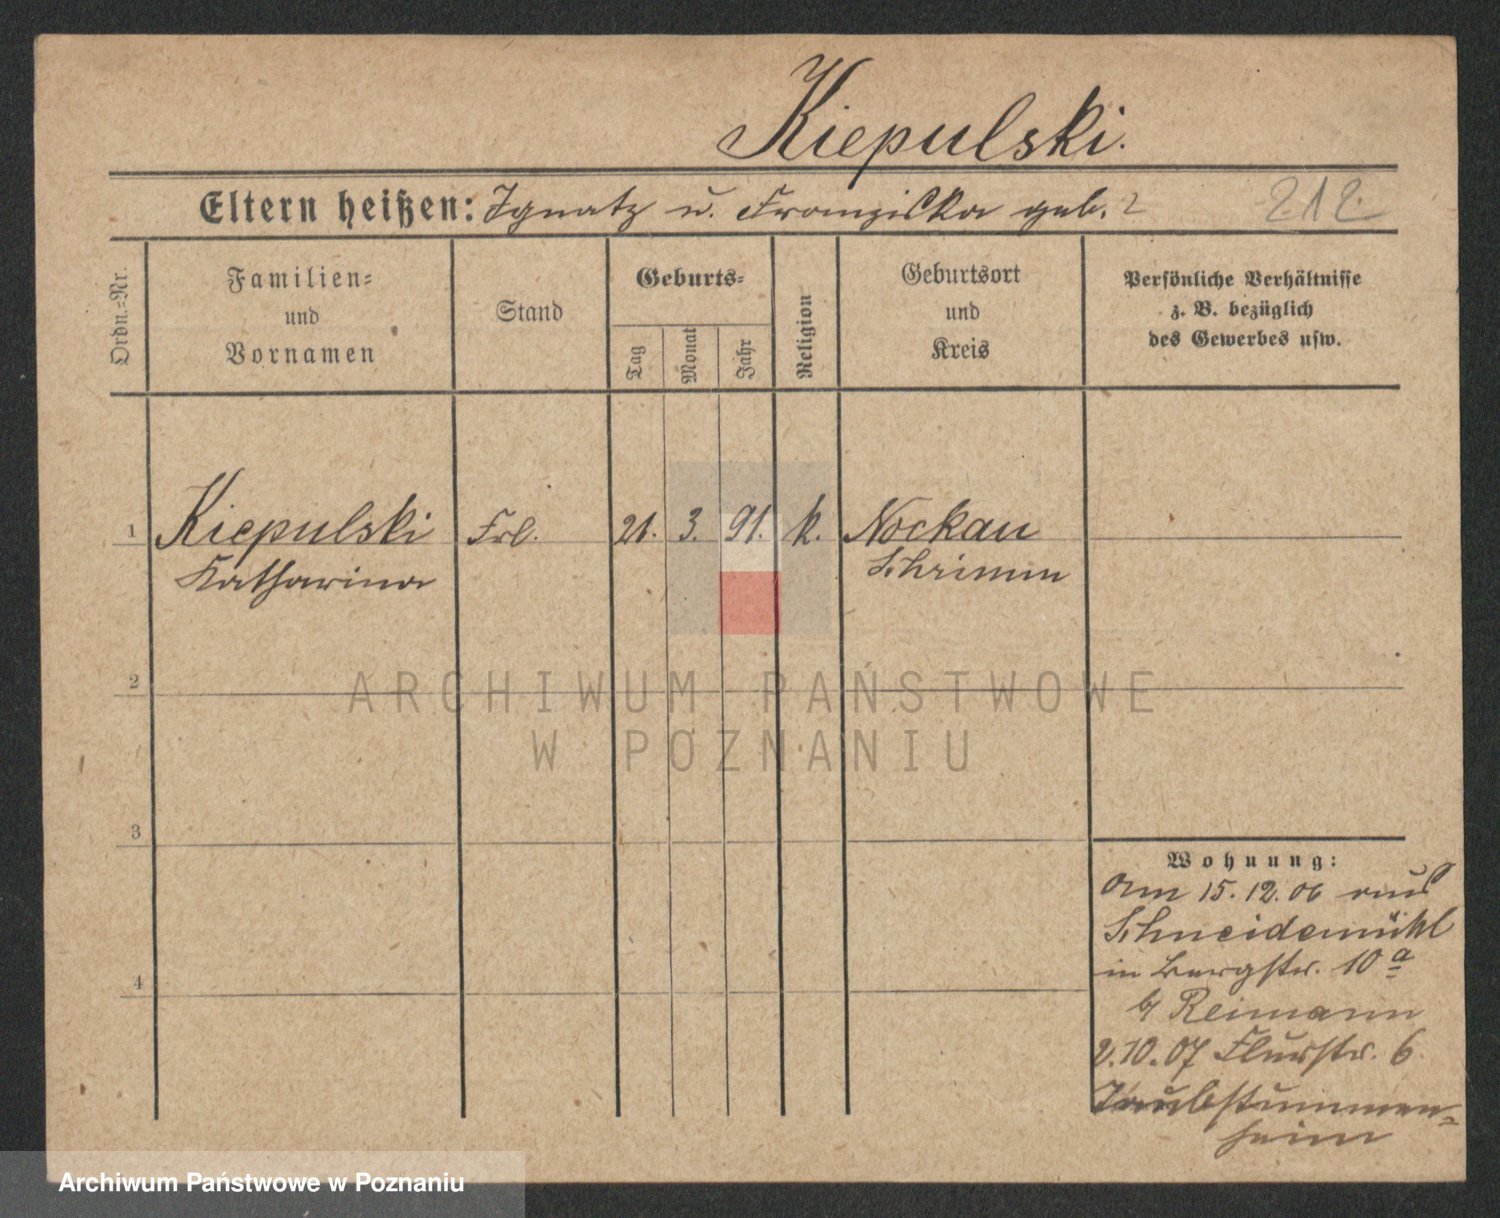 Kiepulski.
Eltern heißen: Ignatz u. Franziska geb. ?
212
Ordn.=Nr.
Familien=
und
Vornamen
Stand
Geburts=
Tag
Monat
Jahr
Religion
Geburtsort
und
Kreis
Persönliche Verhältnisse
z. B. bezüglich
des Gewerbes usw.
1 Kiepulski Frl. 21. 3. 91. k. Nockau
Katharina Schrimm
2
ARCHIWUM PAŃSTWOWE
W POZNANIU
3
Wohnung:
Am 15.12.06 aus
Schneidemühl
in Bergstr. 10a
b/ Reimann
4
2.10.07 Flurstr. 6
Taubstummen=
heim
Archiwum Państwowe w Poznaniu